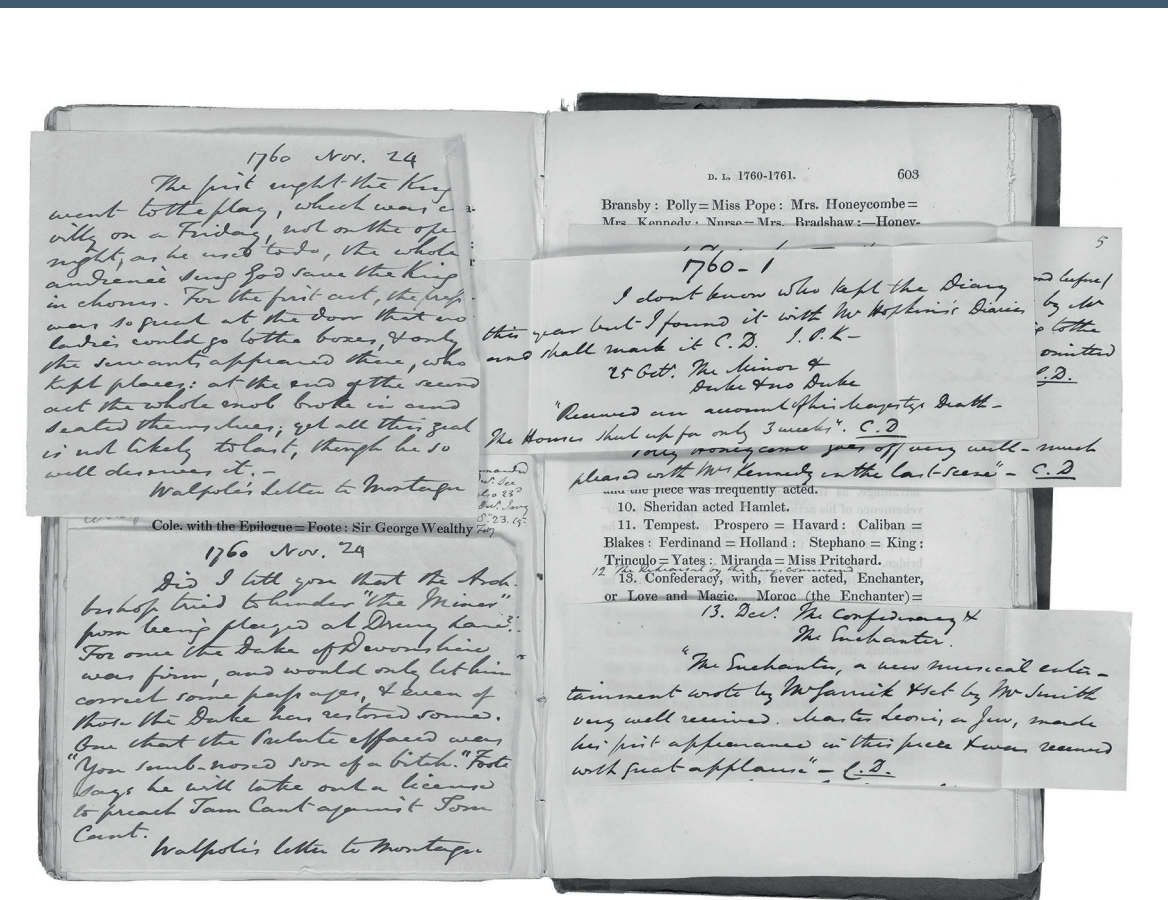 1760 Nov. 24
The first night the King
went to the play, which was ci-
villy on a Friday, not on the ope
night, as he used to do, the whole
audience sung God save the King
in chorus. For the first act, the press
was so great at the door that no
ladies could go to the boxes, & only
the servants appeared there, who
kept places: at the end of the second
act the whole mob broke in and
seated themselves; yet all this zeal
is not likely to last, though he so
well deserves it. -
Walpole's Letter to Montagu
Cole. with the Epilogue = Foote: Sir George Wealthy
1760 Nov. 24
Did I tell you that the Arch-
bishop tried to hinder "the Minor"
from being played at Drury Lane?
For once the Duke of Devonshire
was firm, and would only let him
correct some passages, & even of
those the Duke has restored some.
One that the Prelate effaced was
"You snub-nosed son of a bitch." Foote
says he will take out a license
to preach Tam Cant against Tom
Cant.
Walpole's letter to Montagu
D. L. 1760-1761. 603
Bransby: Polly = Miss Pope: Mrs. Honeycombe =
Mrs. Kennedy: Nurse = Mrs. Bradshaw:—Honey-
5
by Mr
to the
omitted
C.D.
1760-1
I dont know who kept the Diary
this year but I found it with Mr Hopkins's Diaries
and shall mark it C.D. J.P.K-
25 Octr. The Minor &
Duke & no Duke
"Received an account of his Majestys Death-
The Houses shut up for only 3 weeks". C.D
Polly Honeycomb goes off very well - much
pleased with Mrs Kennedy in the last scene" - C.D
and the piece was frequently acted.
10. Sheridan acted Hamlet.
11. Tempest. Prospero = Havard: Caliban =
Blakes: Ferdinand = Holland: Stephano = King:
Trinculo = Yates: Miranda = Miss Pritchard.
12 The Rehearsal by the King's command
13. Confederacy, with, never acted, Enchanter,
or Love and Magic. Moroc (the Enchanter) =
13. Decr. The Confederacy &
The Enchanter.
"The Enchanter, a new musical enter-
tainment wrote by Mr Garrick & set by Mr Smith
very well received. Master Leoni, a Jew, made
his first appearance in this piece & was received
with great applause" - C.D.